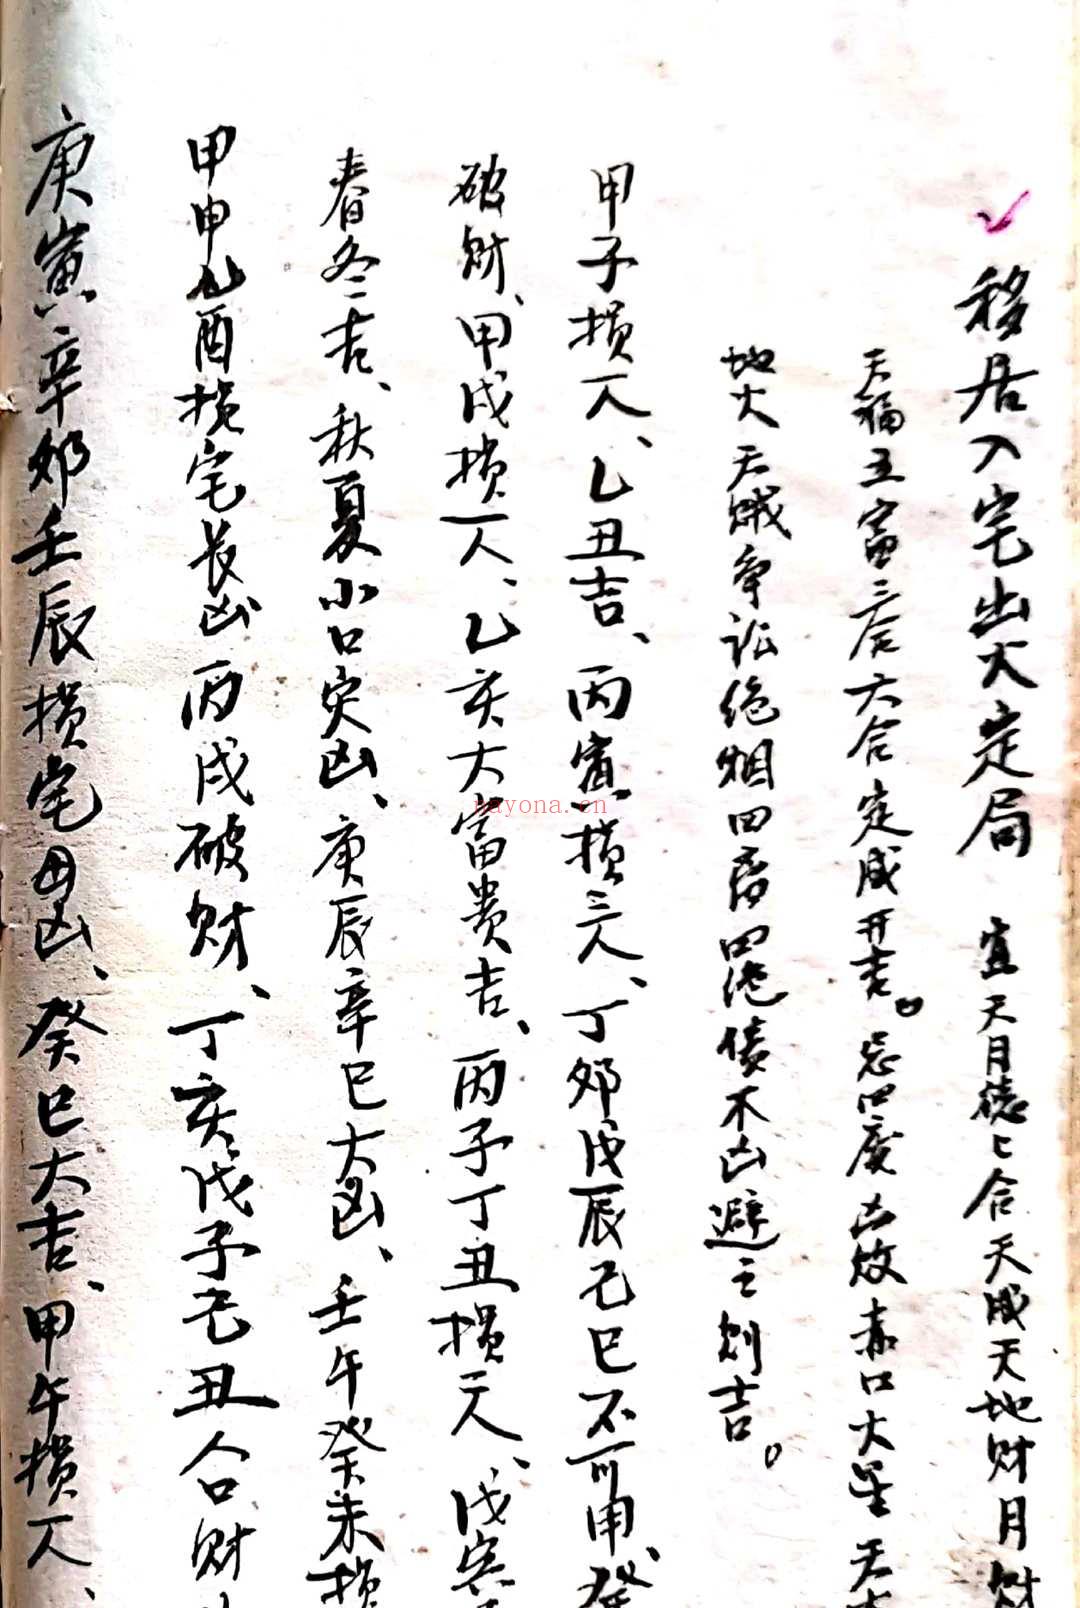 移居入宅出火定局 宜天月德七合天成天地财月财
天福五富三合六合定成开吉。忌四废凶败 口大星天
地火天贼争讼绝烟 不凶避之则吉。
甲子损一人、乙丑吉、丙寅损三人、丁卯戊辰己巳不可用、癸
破财、甲戌损一人、乙亥大富贵吉、丙子丁丑损二人、戊寅
春冬吉、秋夏小口灾凶、庚辰辛巳大凶、壬午癸未损
甲申乙酉损宅长凶丙戌破财、丁亥戊子己丑合财
庚寅辛卯壬辰损宅母凶、癸巳大吉、甲午损一人、
nayona.cn